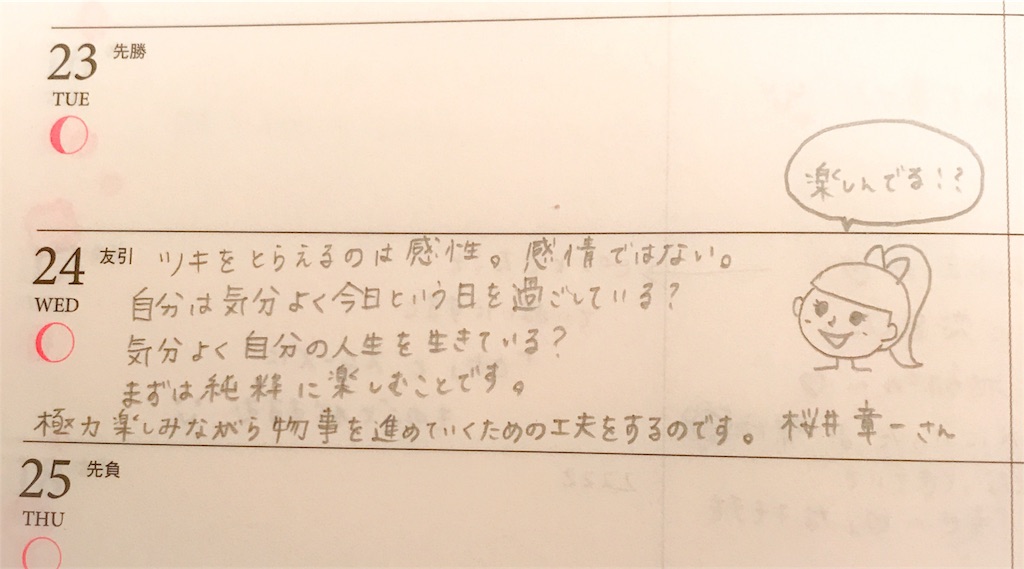 23 先勝
TUE
楽しんでる!?
24 友引
WED
ツキをとらえるのは感性。感情ではない。
自分は気分よく今日という日を過ごしている?
気分よく自分の人生を生きている?
まずは純粋に楽しむことです。
極力楽しみながら物事を進めていくための工夫をするのです。 桜井章一さん
25 先負
THU